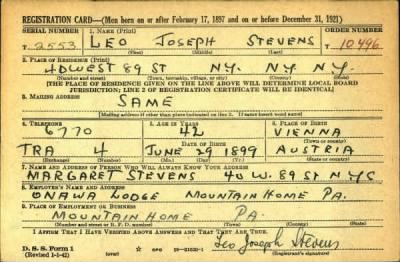 REGISTRATION CARD—(Men born on or after February 17, 1897 and on or before December 31, 1921)
SERIAL NUMBER 1. NAME (Print) ORDER NUMBER
T. 2553 LEO JOSEPH STEVENS T 10496
(First) (Middle) (Last)
2. PLACE OF RESIDENCE (Print)
40 WEST 89 ST N.Y. N.Y. N.Y.
(Number and street) (Town, township, village, or city) (County) (State)
[THE PLACE OF RESIDENCE GIVEN ON THE LINE ABOVE WILL DETERMINE LOCAL BOARD
JURISDICTION; LINE 2 OF REGISTRATION CERTIFICATE WILL BE IDENTICAL]
3. MAILING ADDRESS
SAME
[Mailing address if other than place indicated on line 2. If same insert word same]
4. TELEPHONE 5. AGE IN YEARS 6. PLACE OF BIRTH
6770 42 VIENNA
DATE OF BIRTH (Town or county)
TRA 4 JUNE 29 1899 AUSTRIA
(Exchange) (Number) (Mo.) (Day) (Yr.) (State or country)
7. NAME AND ADDRESS OF PERSON WHO WILL ALWAYS KNOW YOUR ADDRESS
MARGARET STEVENS 40 W. 89 ST NYC
8. EMPLOYER'S NAME AND ADDRESS
ONAWA LODGE MOUNTAIN HOME PA.
9. PLACE OF EMPLOYMENT OR BUSINESS
MOUNTAIN HOME PA.
(Number and street or R. F. D. number) (Town) (County) (State)
I AFFIRM THAT I HAVE VERIFIED ABOVE ANSWERS AND THAT THEY ARE TRUE.
D. S. S. Form 1 Leo Joseph Stevens
(Revised 1-1-42) (over) (Registrant's signature)